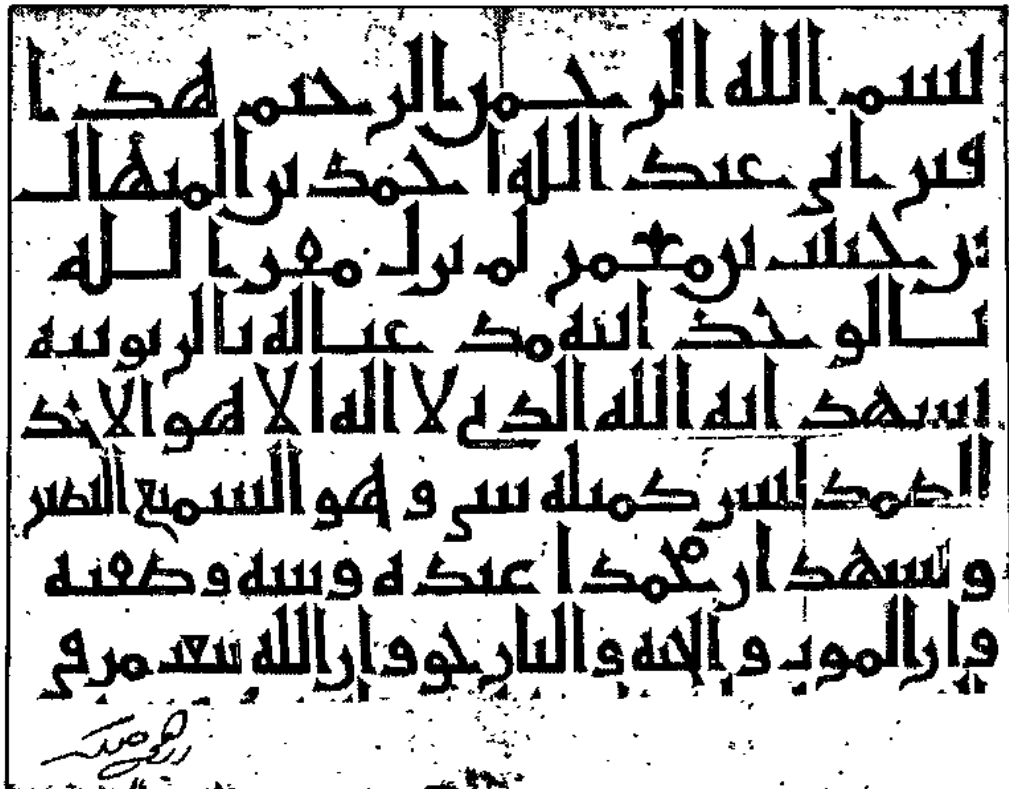 بسم الله الرحمن الرحيم هذا
قبر ابي عبد الله احمد بن المنهال
بن حبيب بن معمر لم يزل مقرا لله
بالوحدانيه مذعنا له بالربوبيه
يشهد انه الله الذي لا اله الا هو الاحد
الصمد ليس كمثله شي و هو السميع البصير
و يشهد ان محمدا عبده و نبيه و صفيه
و ان الموت و الجنه و النار حق و ان الله يبعث من في